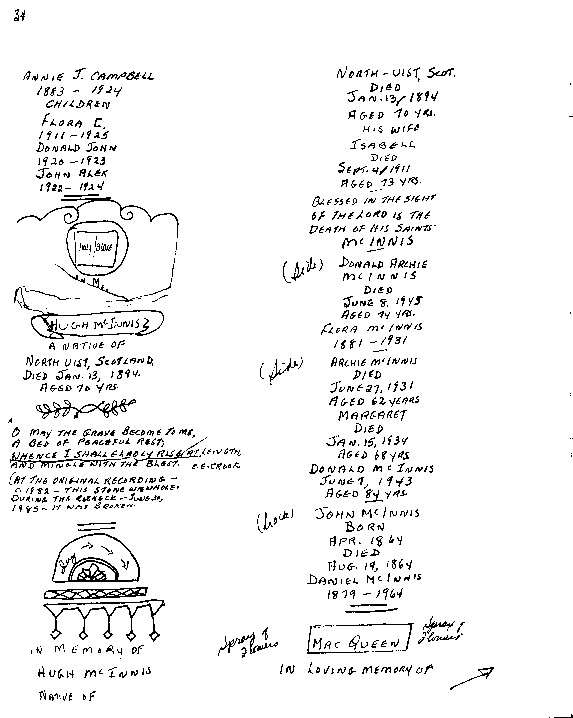 34
ANNIE J. CAMPBELL
1883 - 1924
CHILDREN
FLORA C.
1911 - 1925
DONALD JOHN
1920 - 1923
JOHN ALEX
1922 - 1924
HOLY BIBLE
HUGH McINNIS
A NATIVE OF
NORTH UIST, SCOTLAND,
DIED JAN. 13, 1894.
AGED 70 YRS.
O MAY THE GRAVE BECOME TO ME,
A BED OF PEACEFUL REST,
WHENCE I SHALL GLADLY RISE AT LENGTH,
AND MINGLE WITH THE BLEST.
(AT THE ORIGINAL RECORDING -
C. 1982 - THIS STONE WAS WHOLE.
DURING THE RECHECK - JUNE
1985 - IT WAS BROKEN.
IN MEMORY OF
HUGH McINNIS
NATIVE OF
NORTH - UIST, SCOT.
DIED
JAN. 13/1894
AGED 70 YRS.
HIS WIFE
ISABELL
DIED
SEPT. 4/1911
AGED 73 YRS.
BLESSED IN THE SIGHT
OF THE LORD IS THE
DEATH OF HIS SAINTS
McINNIS
(Side) DONALD ARCHIE
McINNIS
DIED
JUNE 8, 1945
AGED 74 YRS.
FLORA McINNIS
1881 - 1931
(Side) ARCHIE McINNIS
DIED
JUNE 27, 1931
AGED 62 YEARS
MARGARET
DIED
JAN. 15, 1934
AGED 68 YRS
DONALD McINNIS
JUNE 7, 1943
AGED 84 YRS.
(back) JOHN McINNIS
BORN
APR. 1864
DIED
AUG. 19, 1864
DANIEL McINNIS
1879 - 1964
Spray of flowers
MAC QUEEN
Spray of flowers
IN LOVING MEMORY OF